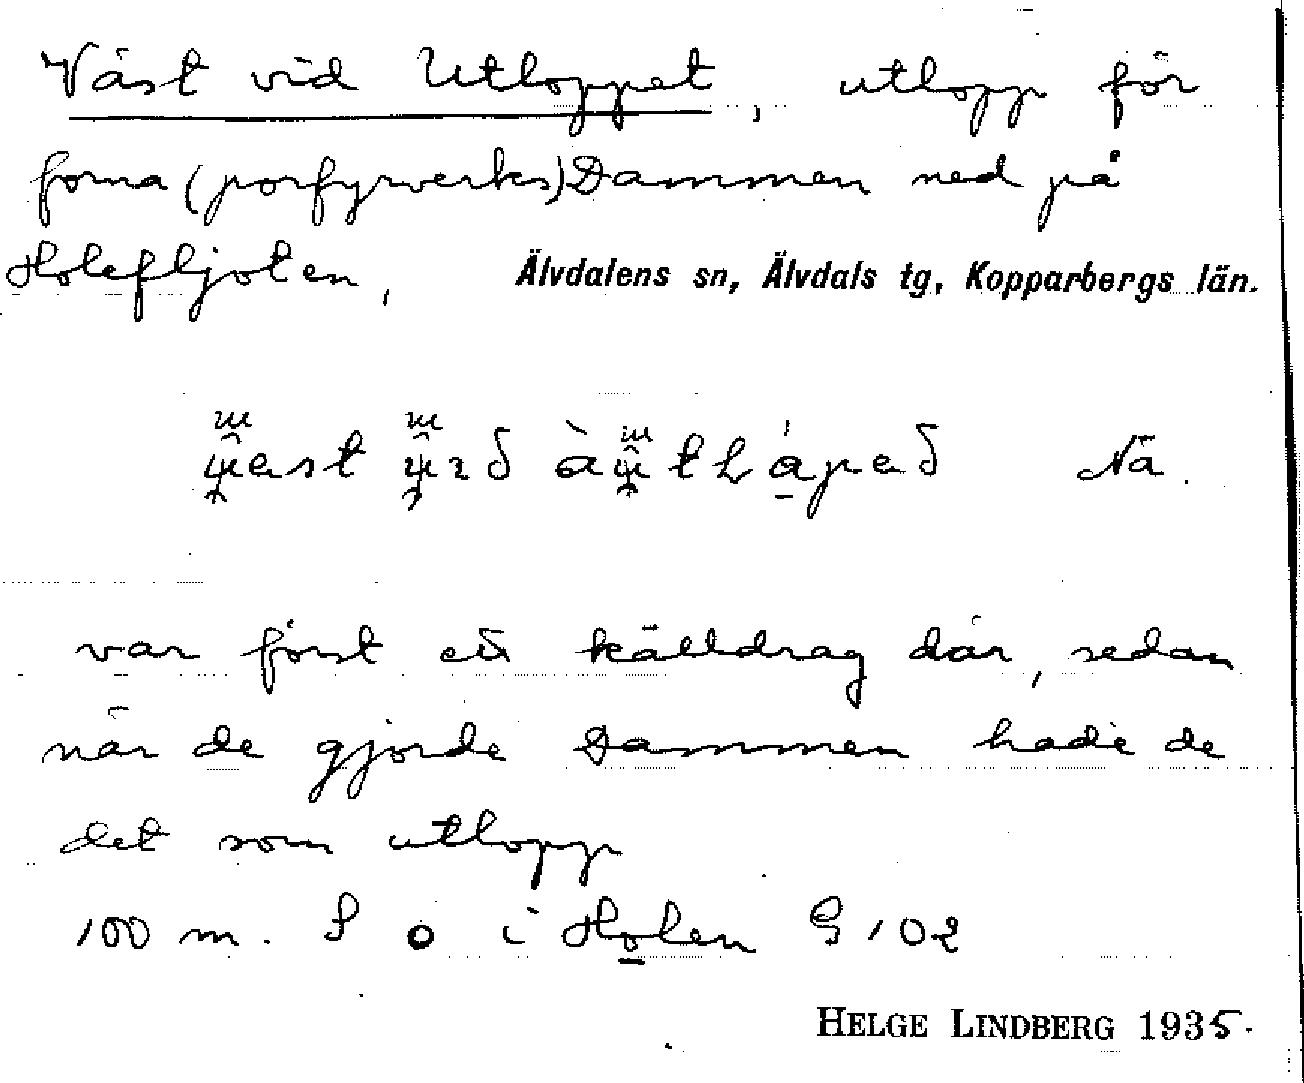 Väst vid Utloppet, utlopp för
forna (porfyrverks) Dammen ned på
Holefljoten, Älvdalens sn, Älvdals tg, Kopparbergs län.
Nä.
var först ett källdrag där, sedan
när de gjorde Dammen hade de
det som utlopp
100 m. S o i Holen G 102
HELGE LINDBERG 1935.